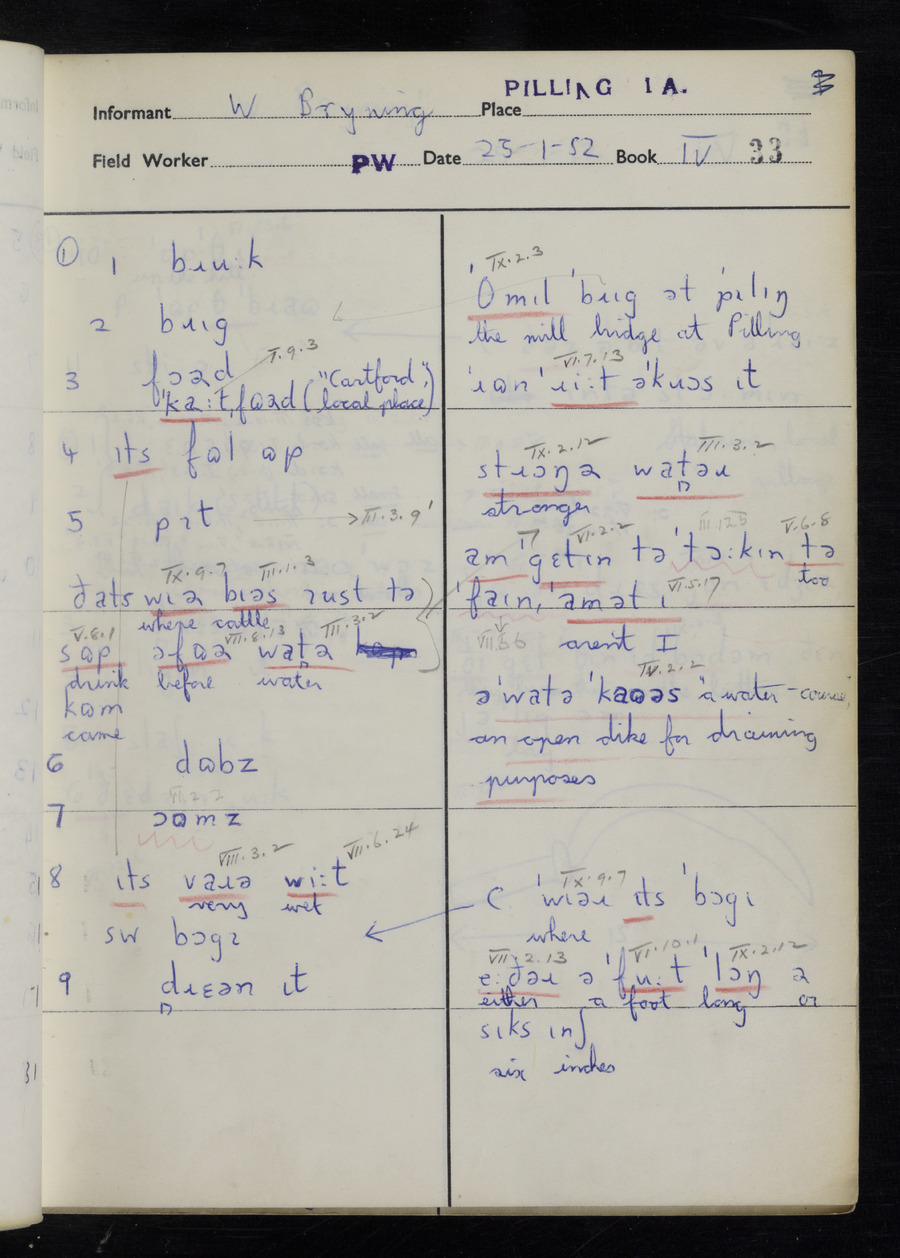 PILLING 1A.
Informant W Bryning Place
Field Worker PW Date 25-1-52 Book IV 33
① 1 bɹuːk
2 bɹɪg
3 fɔəd
V.9.3
ˈkaːtˌfɒəd ("Cartford", local place)
4 ɪts fɒl ɒp
5 pɪt → III.3.9
IX.9.7 III.1.3
ðats wɪə bɪəs ɪust tə
where cattle
V.8.1 VII.8.13 III.3.2
sɒp əfɒə watə
drink before water
kɒm
came
6 dɒbz
VI.2.2
7 ɔɒmz
VIII.3.2 VII.6.24
8 ɪts vaɹə wiːt
very wet
sw bɔgɪ
9 dɹɛən ɪt
IX.2.3
ˈðmɪl ˈbɹɪg ət ˈpɪlɪŋ
the mill bridge at Pilling
VI.7.13
ˈɹɒn ˈɹiːt əˈkɹɔs ɪt
IX.2.12 III.3.2
stɹɔŋə watəɹ
stronger
VI.2.2 III.12.5 V.6.8
am ˈgetɪn tə ˈtɔːkɪn tə
too
ˈfaɪn, ˈamət ɪ VI.5.17
VII.5.6 arent I
IV.2.2
əˈwatə ˈkɒəs "a water-course",
an open dike for draining
purposes
IX.9.7
ˈwɪəɹ ɪts ˈbɔgɪ
where
VII.2.13 VI.10.1 IX.2.12
eːðəɹ ə ˈfuːt ˈlɔŋ ə
either a foot long or
sɪks ɪnʃ
six inches